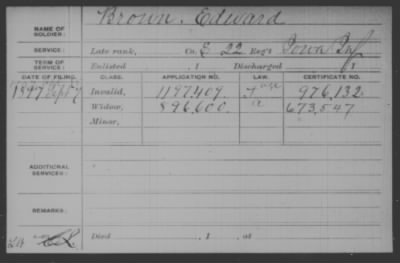 Brown, Edward
NAME OF
SOLDIER:
SERVICE: Late rank, Co. E 22 Reg't Iowa Inf
TERM OF
SERVICE: Enlisted , 1 Discharged , 1
DATE OF FILING. CLASS. APPLICATION NO. LAW. CERTIFICATE NO.
1897 Sept 7 Invalid, 1197,409. 976,132
Widow, 896,600. a 673,547
Minor,
ADDITIONAL
SERVICES:
REMARKS:
Died , 1 , at